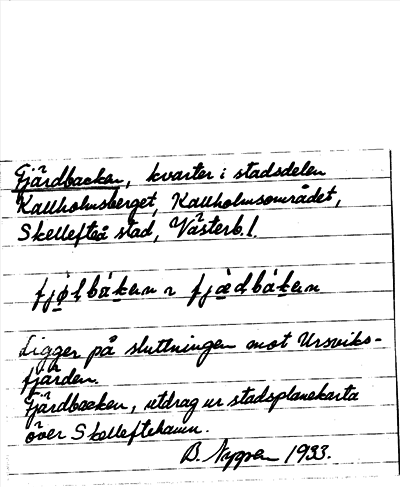 Fjärdbacken, kvarter i stadsdelen
Kallholmsberget, Kallholmsområdet,
Skellefteå stad, Västerb. l.
fjo̱lbáḵen ~ fjàdbáḵen
Ligger på sluttningen mot Ursviks-
fjärden.
Fjärdbacken, utdrag ur stadsplanekarta
över Skelleftehamn.
B. Nygren 1933.